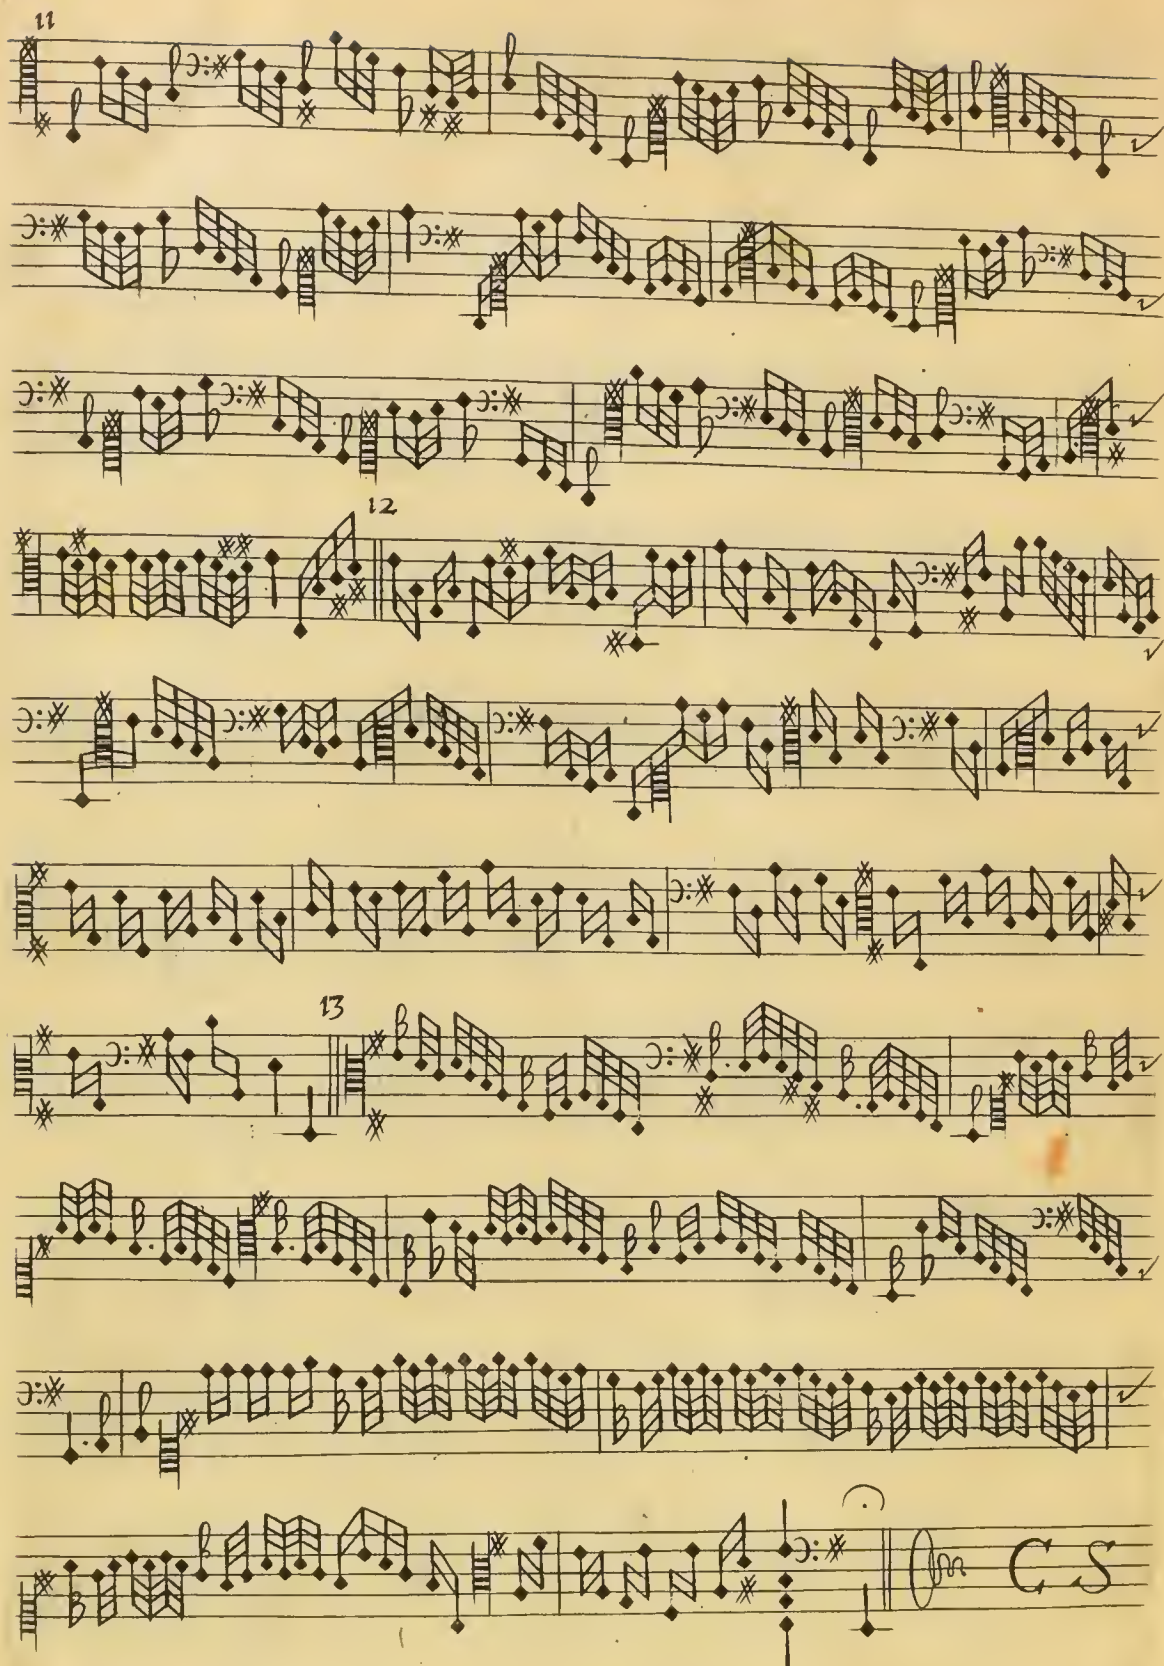 11
12
13
C S